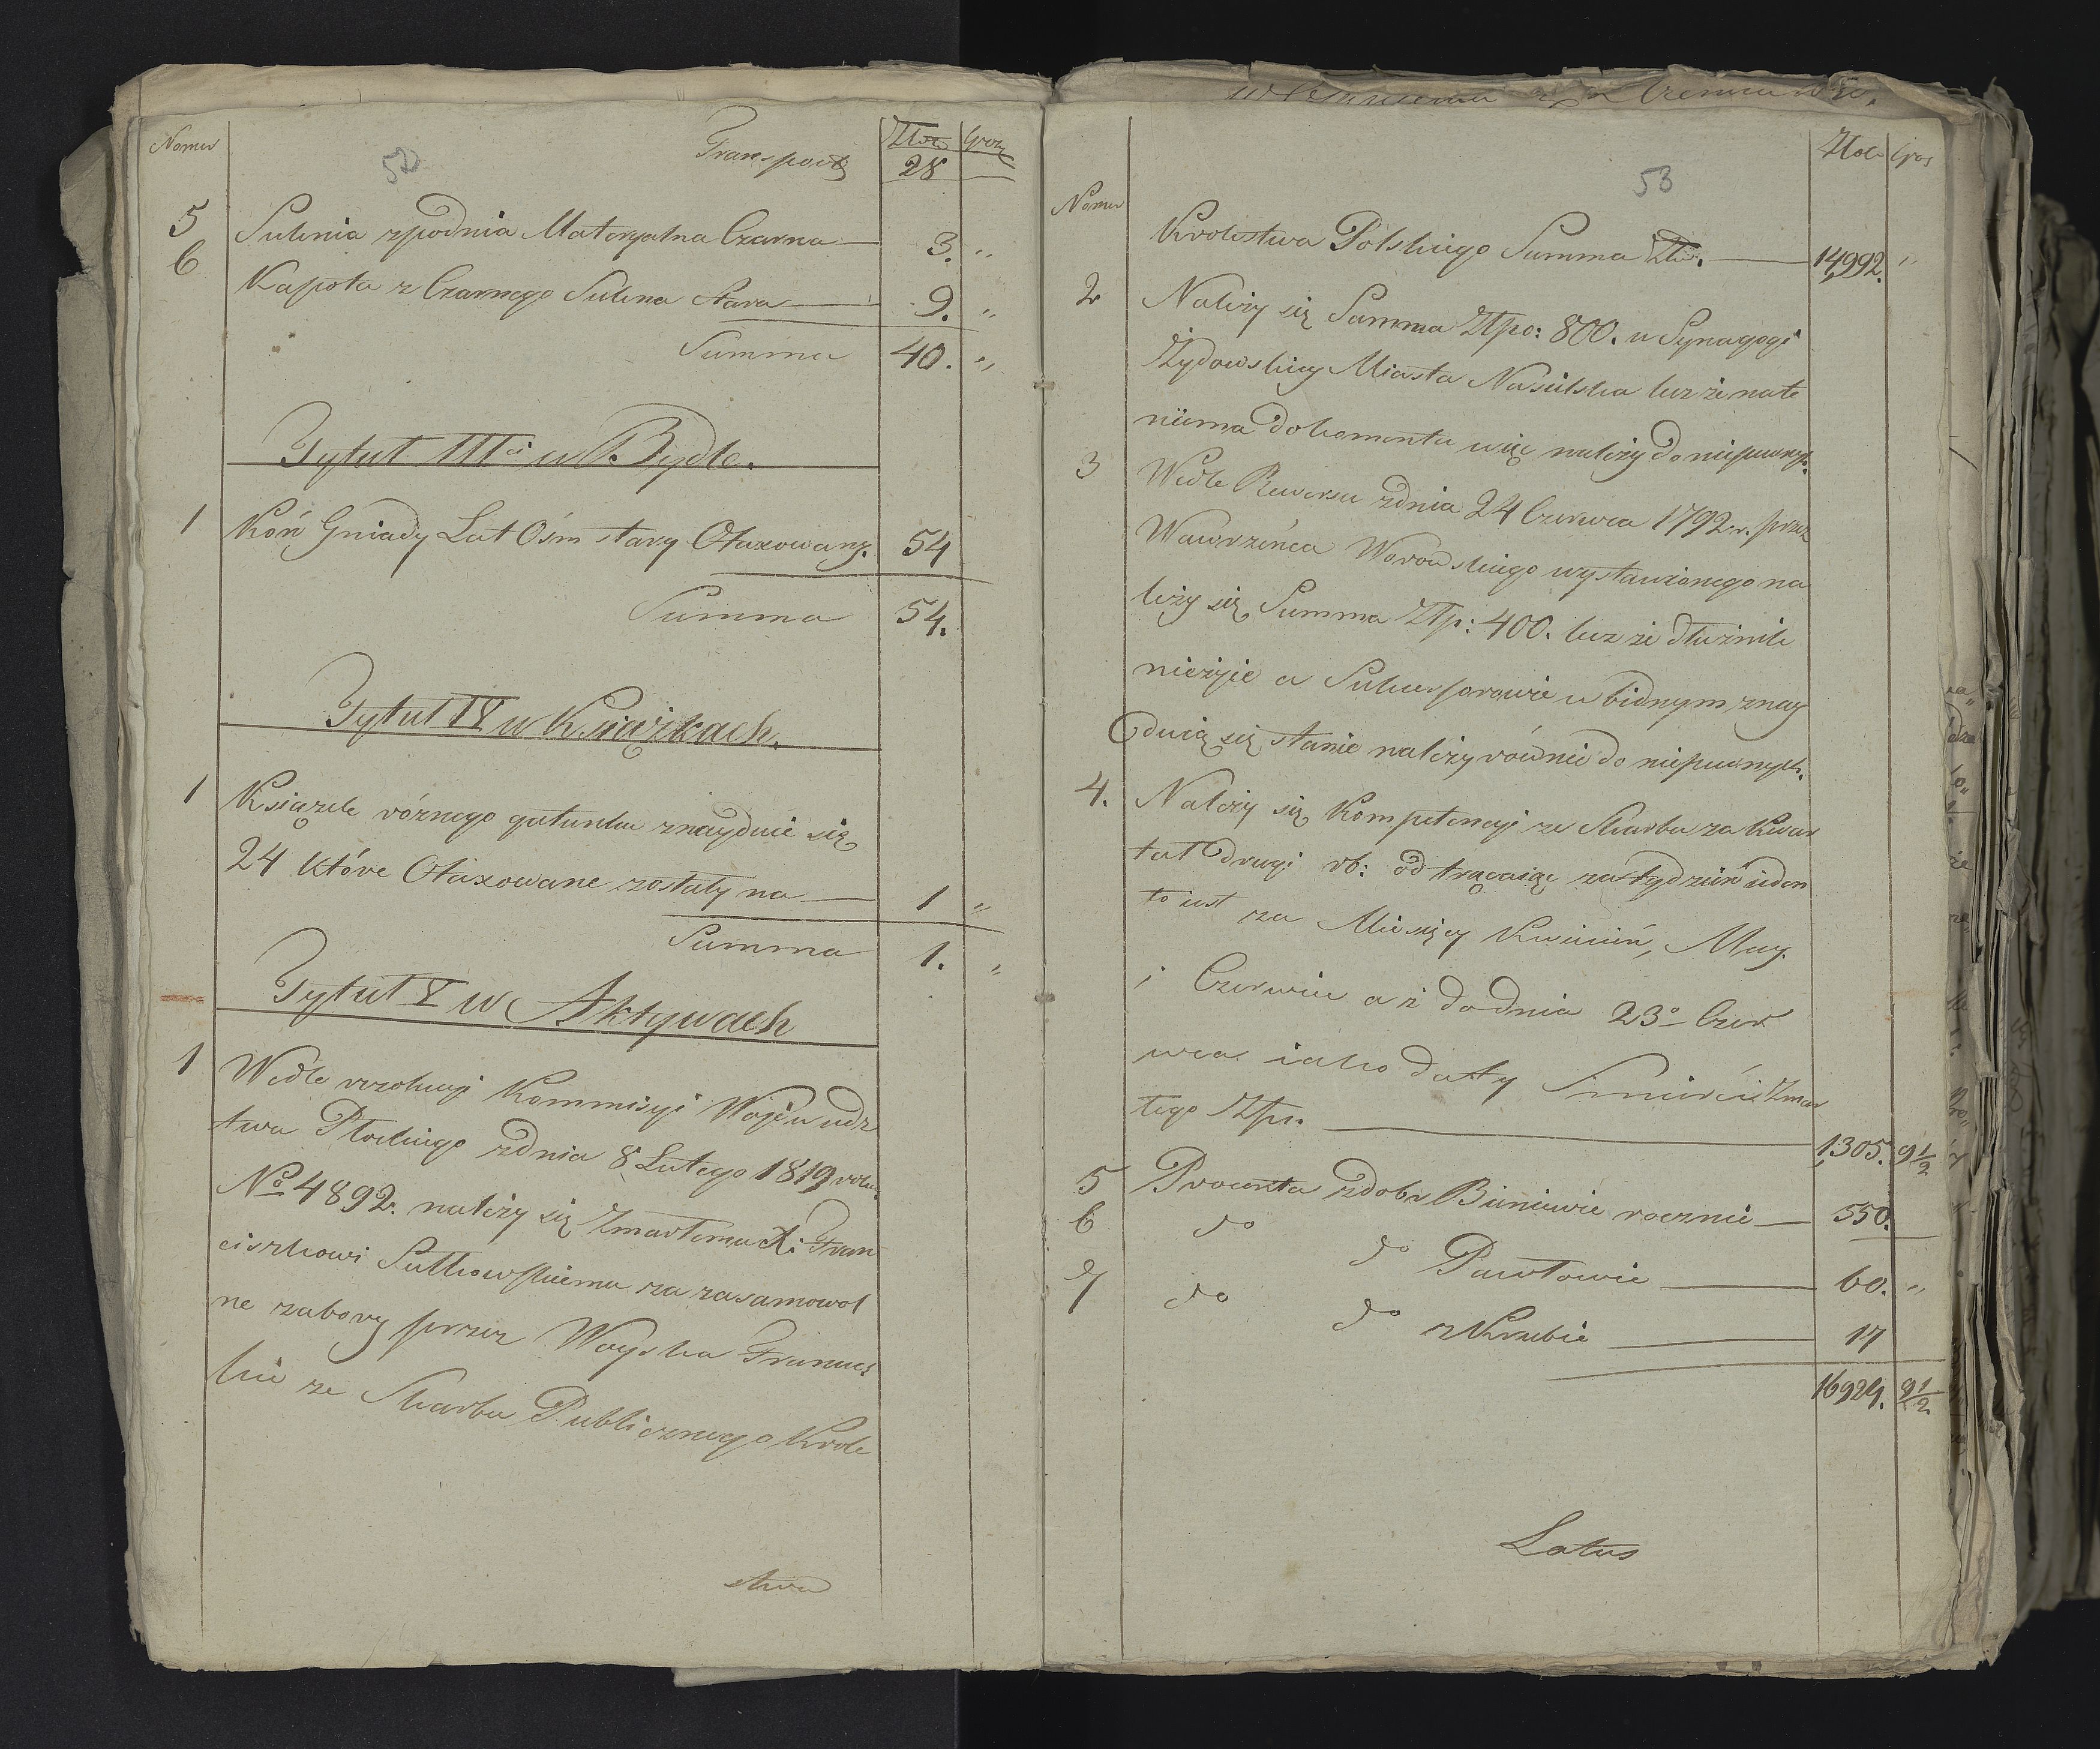 Numer Transport Złote Grosze
52 28
5 Suknia zpodnia Materyalna Czarna 3. "
6 Kapota z Czarnego Sukna stara 9. "
Summa 40. "
Tytuł IIIci w Bydle.
1 Koń Gniady Lat Ośm stary Otaxowany. 54
Summa 54.
Tytuł IV w Książkach.
1 Książek róznego gatunku znayduie się
24 które Otaxowane zostały na 1 "
Summa 1. "
Tytuł V w Aktywach
1 Wedle rezolucyi Kommisyi Wojewudz
twa Płockiego zdnia 8 Lutego 1819 roku
No 4892. należy się Zmarłemu X: Fran
ciszkowi Sutkowskiemu za zasamowol
ne zabory przez Woyska Francus
kie ze Skarbu Publicznego Króle
stwa
53
Numer Złote Gros
Krolestwa Polskiego Summa Złp. 14,992. "
2 Należy się Summa Złpo: 800. u Synagogi
Żydowskiey Miasta Nasielska lecz że na te
niema dokomentu więc należy do niepewnych.
3 Wedle Rewersu zdnia 24 Czerwca 1792 r. przez
Wawrzeńca Worowskiego wystawionego na
leży się Summa Złp: 400. lecz że dłużnik
nieżyie a Sukcessorowie w bidnym znay
duią się stanie należy równie do niepewnych.
4. Należy się Kompetencyi ze Skarbu za Kwar
tał drugi rb: odtrącaiąc za tydzień ieden
to iest za Miesięcy Kwiecień, May.
i Czerwiec aż do dnia 23o Czer
wca iako daty Smierci Zmar
łego Złpr. 1,305. 9 1/2
5 Procenta zdobr Bieniewie rocznie 550.
6 do do Pawłowie 60. "
7 do do z Krubie 17
16924. 9 1/2
Latus